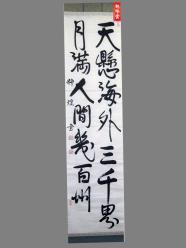 天懸海外三千界
月満人間幾百州